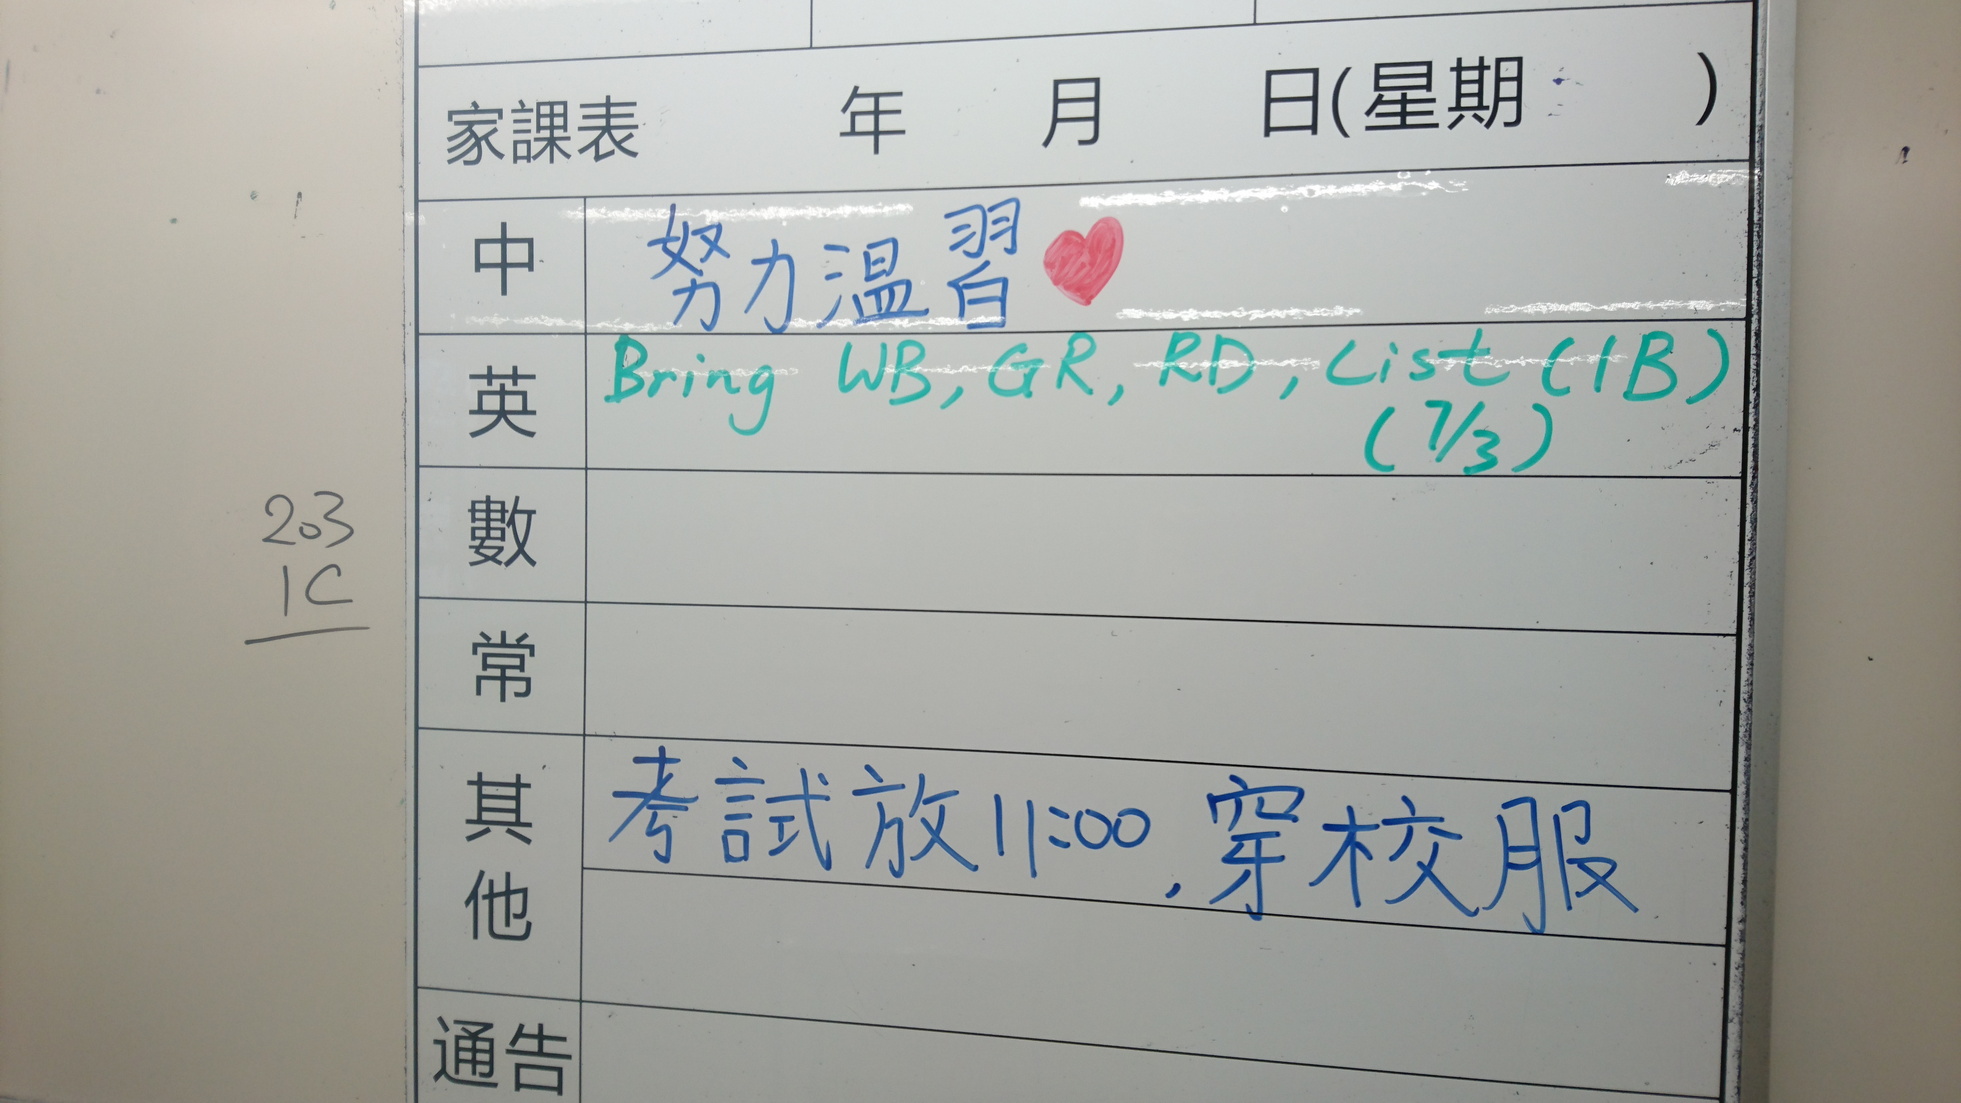 家課表 年 月 日(星期 )
中 努力温習
英 Bring WB, GR, RD, List (1B)
(7/3)
數
常
其他 考試放11:00, 穿校服
通告
203
1C